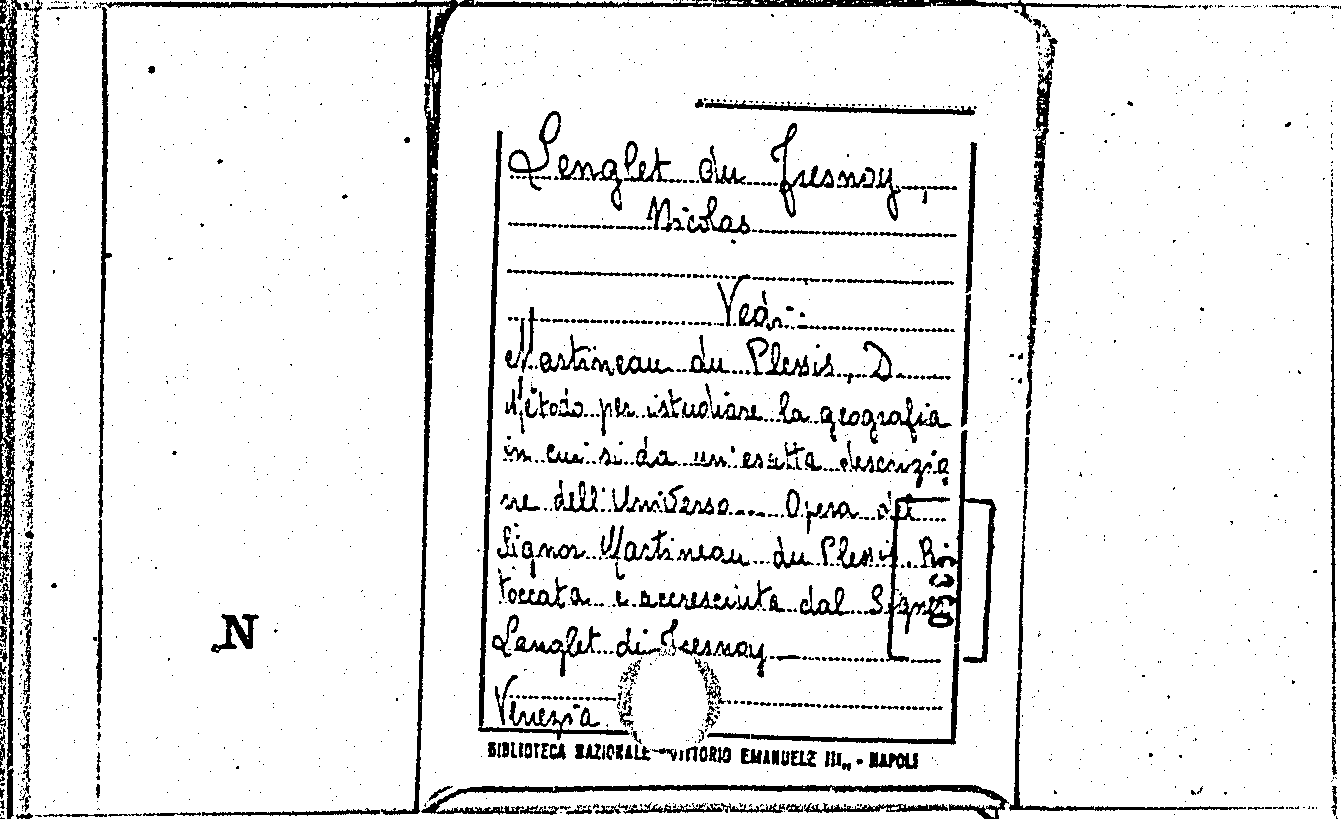 Lenglet du Fresnoy,
Nicolas
Vedi:
Martineau du Plessis, D.
Metodo per istudiare la geografia
in cui si da un'esatta descrizio
ne dell'Universo... Opera del
Signor Martineau du Plessis. Ri
toccata e accresciuta dal Signor
Lenglet di Fresnoy
Venezia
BIBLIOTECA NAZIONALE "VITTORIO EMANUELE III„ - NAPOLI
N